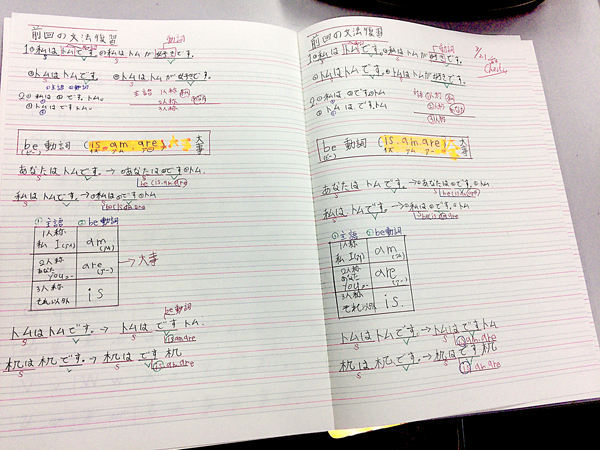 前回の文法復習
動詞
1①私はトムです。②私はトムが好きです。
③トムはトムです。④トムはトムが好きです。
主語 1人称
2人称
3人称
2①私は②です。③トム。
①トムは②です。トム。
be動詞 (is.am.are) 大事
あなたはトムです。→①あなたは②です③トム。
S V
be(is.am.are)
私はトムです。→①私は②です③トム。
S V
be(is.am.are)
①主語 ②be動詞
1人称
私 I am
2人称
あなた
you are →大事
3人称
それ以外 is
be動詞
トムはトムです。→トムはですトム.
S V is.am.are
机は机です。→机はです机
S V is am.are
前回の文法復習
動詞
1①私はトムです。②私はトムが好きです。
③トムはトムです。④トムはトムが好きです。
2①私は②です。③トム
トムはです。トム
主語 ①1人称
②2人称
③3人称
be動詞 (is.am.are) 大事
あなたはトムです。→①あなたは②です。③トム
S V
私はトムです。→①私は②です。③トム
S V
①主語 ②be動詞
1人称
私 I am
2人称
あなた
you are
3人称
それ以外 is
トムはトムです。→トムはですトム
S V is.am.are
机は机です。→机はです机
S V is am.are